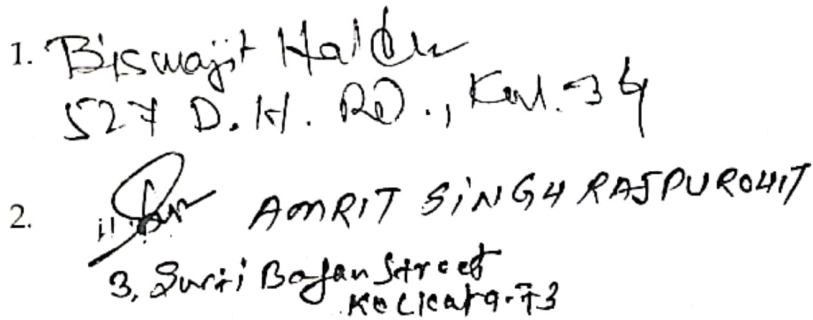 1. Biswajit Halder
527 D. H. RD., Kol. 34
2. AMRIT SINGH RAJPUROHIT
3, Surti Bagan Street
Kolkata-73